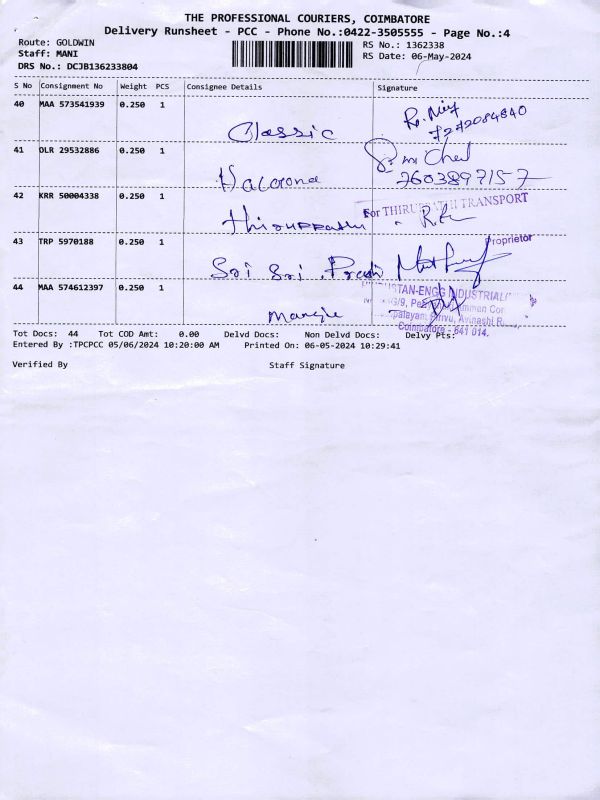 THE PROFESSIONAL COURIERS, COIMBATORE
Delivery Runsheet - PCC - Phone No.:0422-3505555 - Page No.:4
Route: GOLDWIN
Staff: MANI
DRS No.: DCJB136233804
RS No.: 1362338
RS Date: 06-May-2024
S No Consignment No Weight PCS Consignee Details Signature
40 MAA 573541939 0.250 1
Classic
7272084840
41 DLR 29532886 0.250 1
7603897157
42 KRR 50004338 0.250 1
For THIRUPPATHI TRANSPORT
Thiruppathi
43 TRP 5970188 0.250 1
Proprietor
Sri Sri
44 MAA 574612397 0.250 1
STAN-ENGG INDUSTRIAL
Avinashi R
Coimbatore - 641 014.
Tot Docs: 44 Tot COD Amt: 0.00 Delvd Docs: Non Delvd Docs: Delvy Pts:
Entered By :TPCPCC 05/06/2024 10:20:00 AM Printed On: 06-05-2024 10:29:41
Verified By Staff Signature